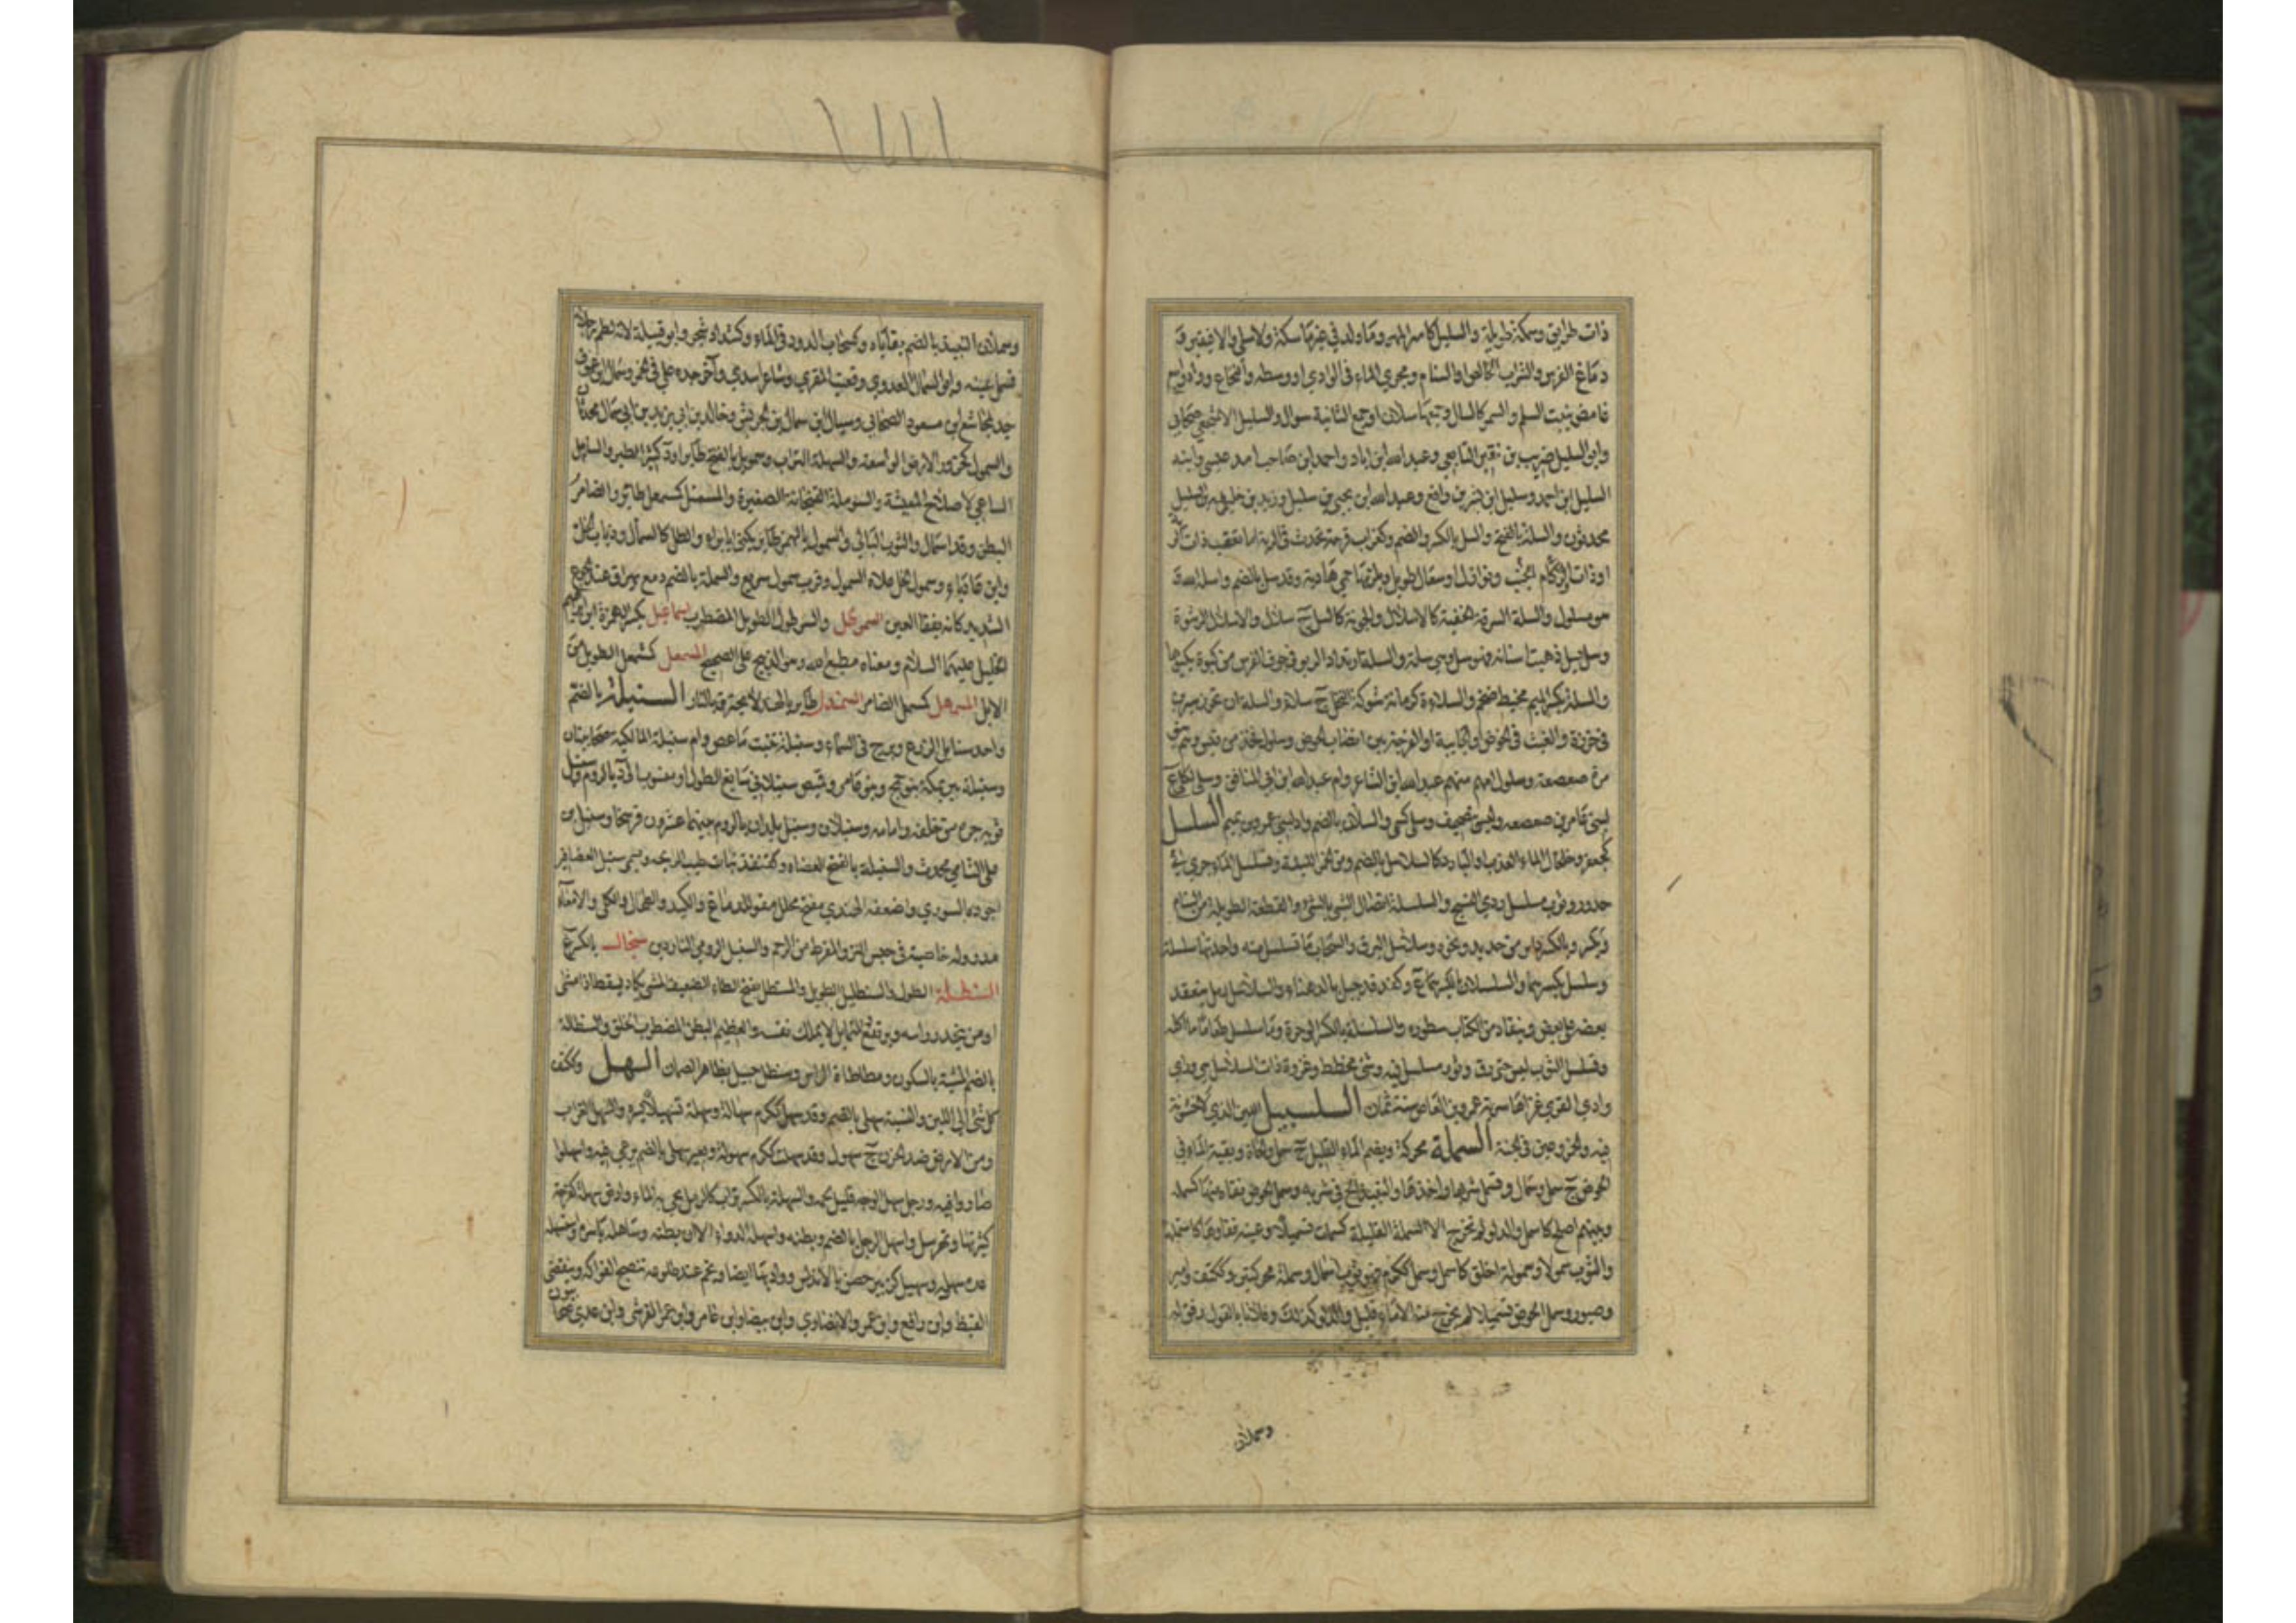 ذات طرايق وسمكة طويلة والسليل كامير المهر وما ولد في غير ماسكة ولا سلى والا فبقير و
دماغ الفرس والشراب الخالص او السنام ومجرى الماء في الوادي او وسطه والنخاع وواد واسع
غامض ينبت السلم والسمر كالسال وجمعها سلان او جمع الثانية سوال والسليل الاشجعي صحابي
وابو السليل ضريب بن نقير التابعي وعبد الله ابن اياد واحمد ابن صاحب آمد عيسى وابنه
السليل ابن احمد وسليل ابن بشر بن رافع وعبد الله ابن يحيى بن سليل وزيد بن خليفة بن السليل
محدثون والسلة بالفتح والسل بالكسر والضم وكغراب قرحة تحدث في الرية اما تعقب ذات الرية
او ذات الجنب او زكام ونوازل او سعال طويل ويلزمها حمى هادية وقد سل بالضم واسله الله
هو مسلول والسلة السرقة الخفية كالاسلال والجونة كالسل ج سلال والاسلال الرشوة
وسل يسل ذهبت اسنانه فهو سل وهي سلة والسلة ارتداد الربو في جوف الفرس من كبوة يكبوها
والمسلة بكسر الميم مخيط ضخم والسلاءة كرمانة شوكة النخل ج سلاء والسلة ان تخرز سيرين
في خرزة والعيب في الحوض او الخابية او الفرجة بين انصاب الحوض وسلول فخذ من قيس وهم بنو
مرة صعصعة وسلول امهم منهم عبد الله ابن الشاعر وام عبد الله ابن ابي المنافق وسلي ككلى ع
لبني عامر بن صعصعة وليس بتصحيف وسلى كحتى والسلان بالضم واد لبني عمرو بن تميم السلسل
كجعفر وخلخال الماء العذب او البارد كالسلاسل بالضم ومن الخمر اللينة وتسلسل الماء جرى في
حدور وثوب مسلسل ردي النسج والسلسلة اتصال الشي بالشي والقطعة الطويلة من السنام
ويكسر وبالكسر داير من حديد ونحوه وسلاسل البرق والسحاب ما تسلسل منه واحدتها سلسلة
وسلسل بكسرهما والسلسلان بالكسر ع وكفدفد جبل بالدهناء والسلاسل رمل ينعقد
بعضه على بعض وينقاد من الكتاب سطوره والسلسلة بالكسر الوحرة وما سلسل طعاما ما اكله
وتسلسل الثوب لبس حتى رق وثوب مسلسل فيه وشي مخطط وغزوة ذات السلاسل هي وراي
وادي القرى غزاها سرية عمرو بن العاص سنة ثمان السلسبيل اللين الذي لا خشونة
فيه والخمر وعين في الجنة السملة محركة ويضم الماء القليل ج سمل والحماة وبقية الماء في
الحوض ج سمل وسمال وتسمل شربها واخذها والنبيذ الح في شربه وسمل الحوض نقاه منها كسمله
وبينهم اصلح كاسمل والدلو لم تخرج الا السملة القليلة كسملت تسميلا وعينه فقاها كاستملها
والثوب سمولا وسمولة اخلق كاسمل وسمل ككرم فهو ثوب اسمال وسملة محركتين وككتف وامير
وصبور وسمل الحوض تسميلا لم يخرج منه الا ماء قليل والدلو كذلك وفلانا بالقول رقق له
وسملان
وسملان النبيذ بالضم بقاياه وكسحاب الدود في الماء وكشداد شجر وابو قبيلة لانه لطم رجلا
فسمل عينه وابو السمال العدوي وقعنب المقري وشاعر اسدي وآخر جده علي في مضر وسمال ابن عوف
جد لمجاشع ابن مسعود الصحابي وسيال ابن سمال بن الحريش وخالد بن ابي يزيد بن ابي سمال محدثان
والسمول كحزور الارض الواسعة والسهلة التراب وحمويل بالفتح طاير او د كثير الطير والسامل
الساعي لاصلاح المعيشة والسوملة الفنجانة الصغيرة والمسمئل كمشمعل طاير والضامر
البطن وقد اسمال والثوب البالي والسمول بالهمز طاير يكنى ابا براء والظل كالسمال وذباب الخل
وابن عادياء وسمول الخل علاه السمول وقرب سمول سريع والسملة بالضم دمع يهراق عند الجوع
الشديد كانه يفقا العين السمرطل والسمرطول الطويل المضطرب اسماعيل بكسر الهمزة ابن ابراهيم
الخليل عليهما السلام ومعناه مطيع الله وهو الذبيح على الصحيح المسمعل كشمعل الطويل من
الابل المسمهل كسمهل الضامر السمندل طاير بالهند لا يحترق بالنار السنبلة بالضم
واحد سنابل الزرع وبرج في السماء وسنبلة بنت ماعص وام سنبلة المالكية صحابيتان
وسنبلة بير بمكة بنو جمح وبنو عامر وقميص سنبلاني سابغ الطول او منسوب الى د بالروم وسنبل
ثوبه جره من خلفه وامامه وسنبلان وسنبل بلدان بالروم بينهما عشرون فرسخا وسنبل بن
علي الشامي محدث والسنبلة بالفتح العضاه وكقنفذ نبات طيب الرايحة ويسمى سنبل العصافير
اجوده السوري واضعفه الهندي مفتح محلل مقو للدماغ والكبد والطحال والكلى والامعاء
مدر وله خاصية في حبس النزف المفرط من الرحم والسنبل الرومي الناردين سنجال بالكسر ع
السنطلة الطول والسنطليل الطويل والمسنطل بفتح الطاء الضعيف المشي يكاد يسقط اذا مشى
او من ينحدر راسه ويرتفع المتمايل لا يملك نفسه والعظيم البطن المضطرب الخلق والسنطالة
بالضم المشية بالسكون ومطاطاة الراس وسنطل جبل بظاهر الصمان السهل وككتف
كل شي الى اللين والنسبة سهلي بالضم وقد سهل ككرم سهالة وسهله تسهيلا يسره والسهل الغراب
ومن الارض ضد الحزن ج سهول وقد سهلت ككرم سهولة وبعير سهلي بالضم يرعى فيه واسهلوا
صاروا فيه ورجل سهل الوجه قليل لحمه والسهلة بالكسر تراب كالرمل يجي به الماء وارض سهلة كفرحة
كثيرتها ونهر سهل واسهل الرجل بالضم وبطنه واسهله الدواء الان بطنه وساهله ياسره واستسهله
عده سهلا وسهيل كزبير حصن بالاندلس وواد بها ايضا ونجم عند طلوعه تنضج الفواكه وينقضي
القيظ وابن رافع وابن عمرو الانصاري وابن بيضا وابن عامر وابن عمرو القرشي وابن عدي صحابيون